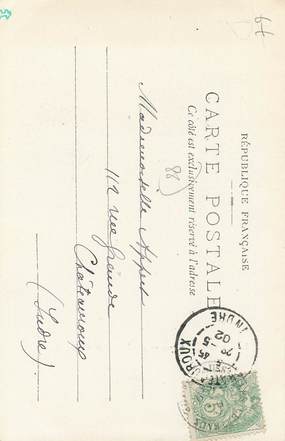 RÉPUBLIQUE FRANÇAISE
CARTE POSTALE
Ce côté est exclusivement réservé à l'adresse
Mademoiselle Appert
112 rue Grande
Châteauroux
(Indre)
INDRE